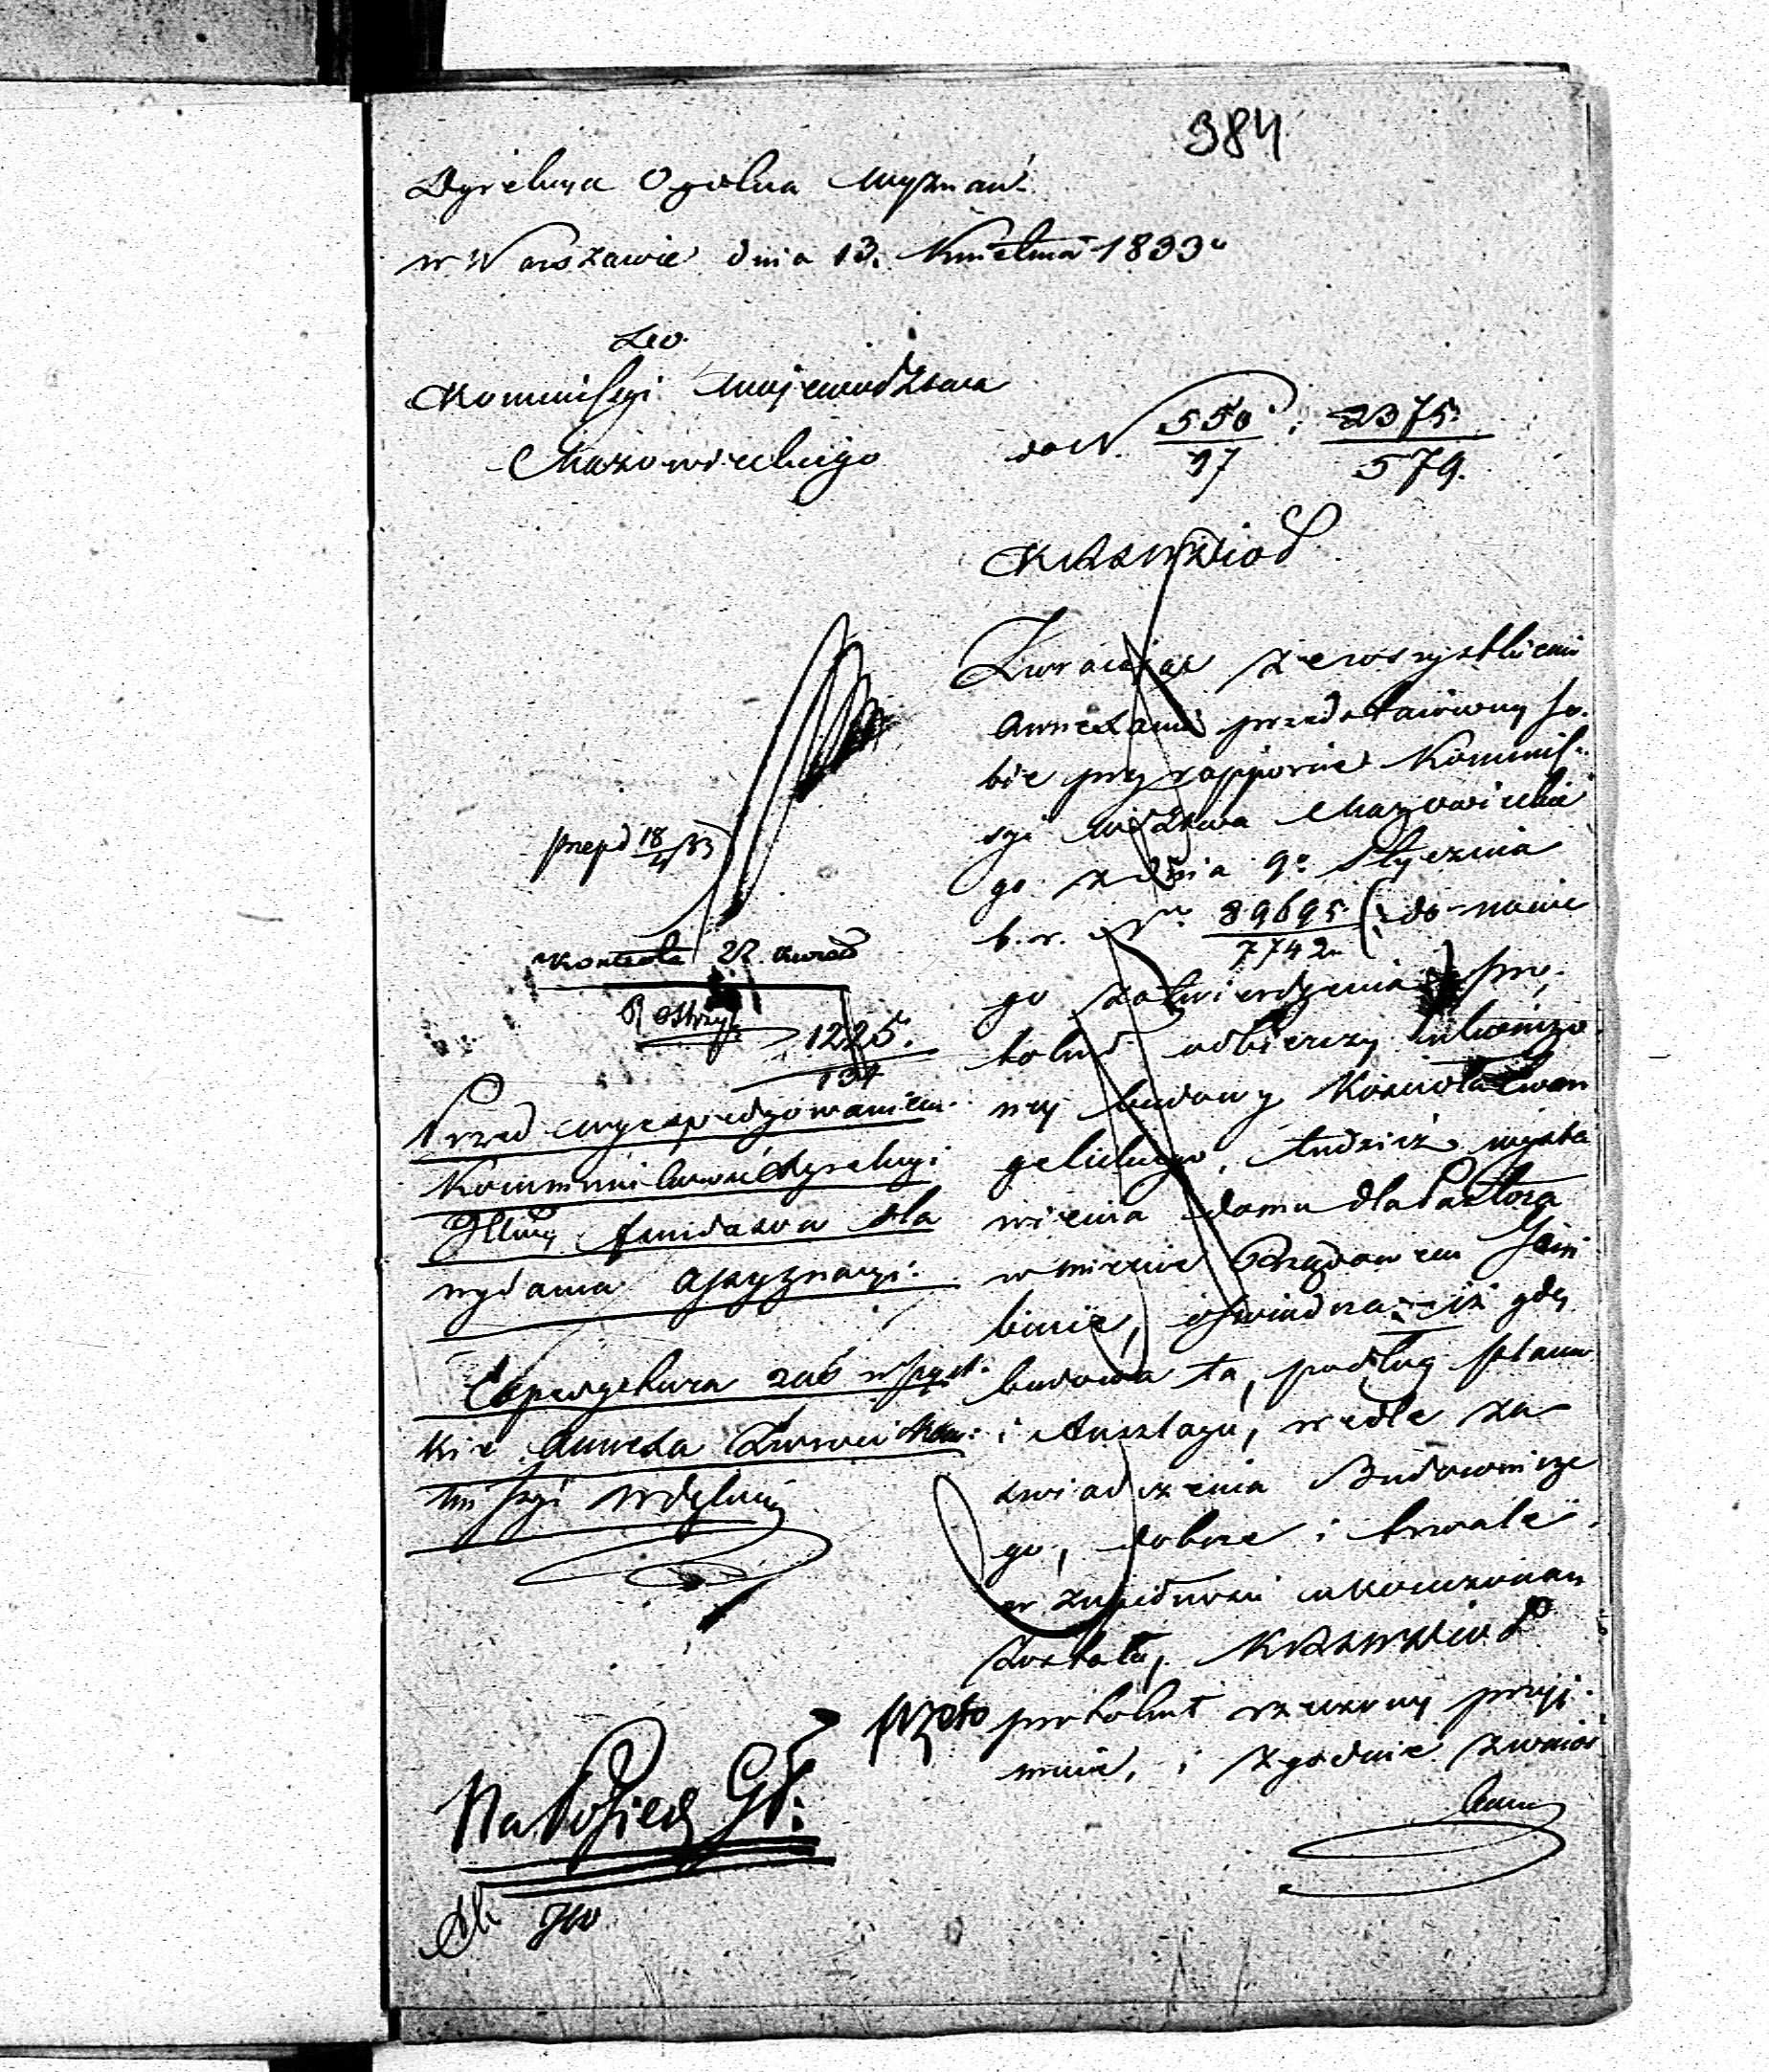 384
Dyrekcya Ogólna Wyznań
w Warszawie dnia 13. Kwietnia 1833
Do
Kommissyi Wojewodztwa
Mazowieckiego
do N. 550/97 i 2375/579.
K R S W D i O P
Zwracając ze wszystkiemi
annexami przedstawiony so-
bie przy rapporcie Kommis-
syi Wdztwa Mazowieckie
go z dnia 9o Stycznia
b. r. Nr 89695/7742 (: do
go zatwierdzenia :) pro-
tokuł odbiorczy ukończo-
nej budowy Kościoła Ewan
gelickiego, tudzież wysta
wienia domu dla Pastora
w mieście
oświadcza, iż gdy
budowa ta, podług planu
i Anszlagu, wedle za
świadczenia Budownicze
go, dobrze i trwale
w zupełności ukończoną
została, K R S W D i O P
przeto protokuł rzeczony przyj-
muie, i zgodnie z wnios
kami
przepd 18/4 33
Kontrola 22.
1225./134
Przed wyexpedyowaniem
Kommunikować Dyrekcyi
dla
wydania assygnacyi.
Expedytura zaś wszyst-
kie annexa zwróci Kom-
missyi
Na Posied